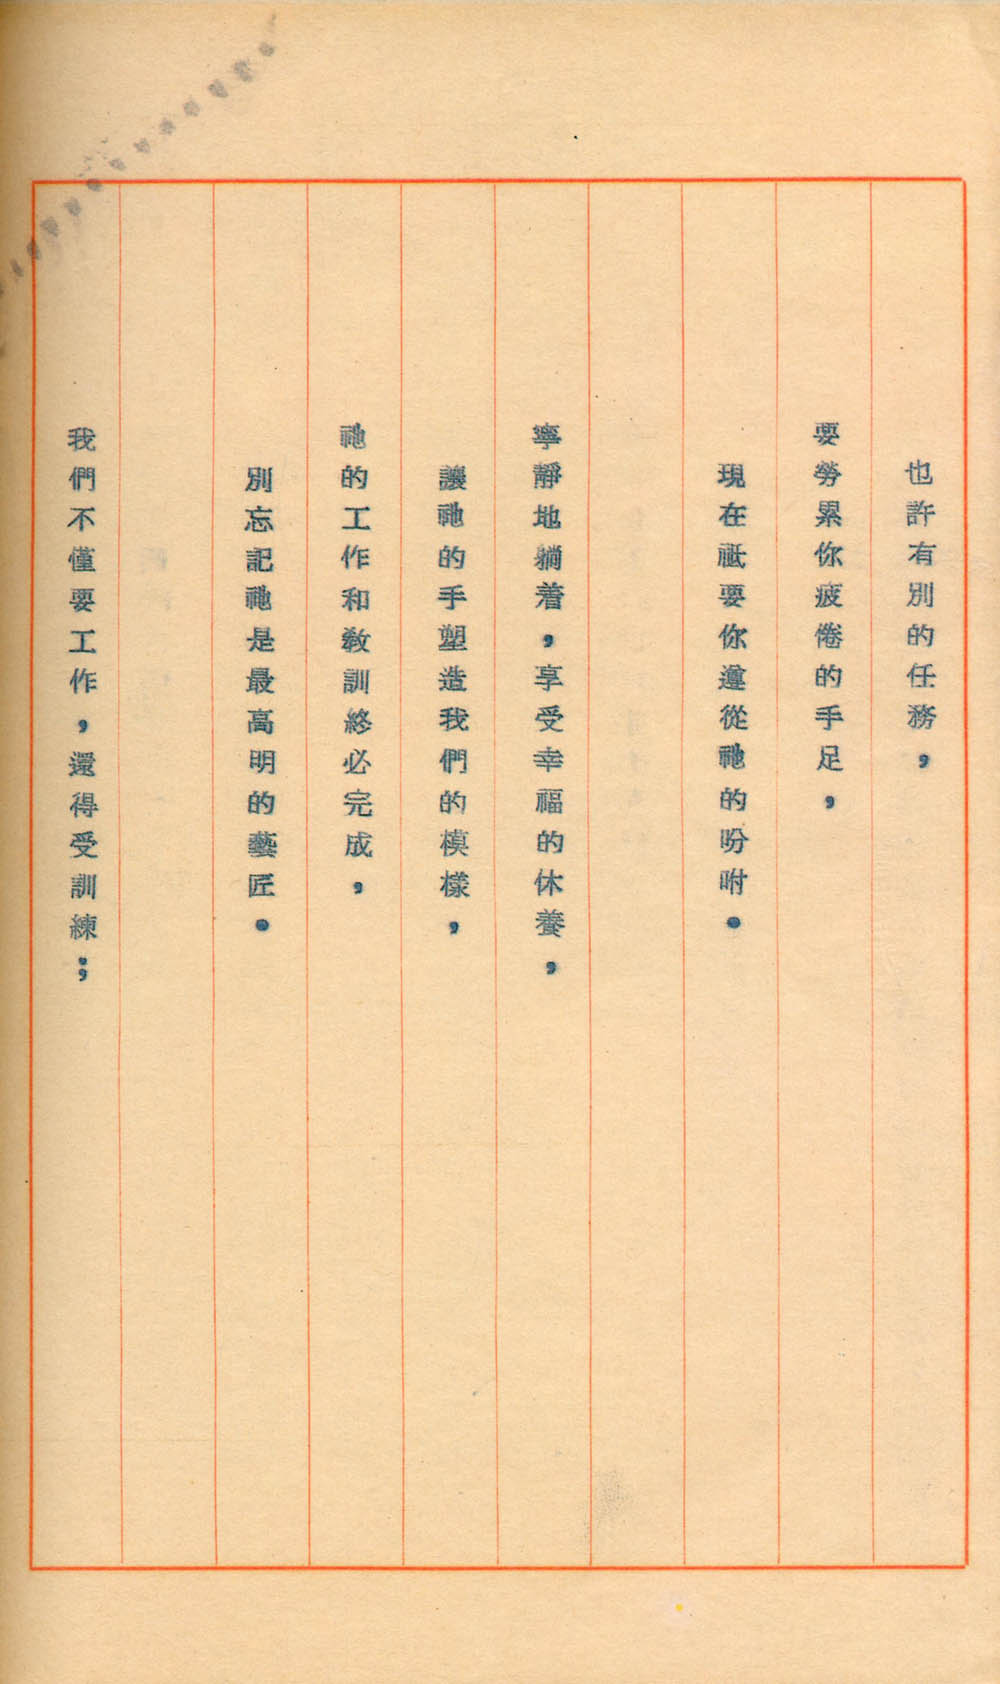 也許有別的任務，
要勞累你疲倦的手足，
現在祗要你遵從祂的吩咐。
寧靜地躺着，享受幸福的休養，
讓祂的手塑造我們的模樣，
祂的工作和教訓終必完成，
別忘記祂是最高明的藝匠。
我們不僅要工作，還得受訓練；